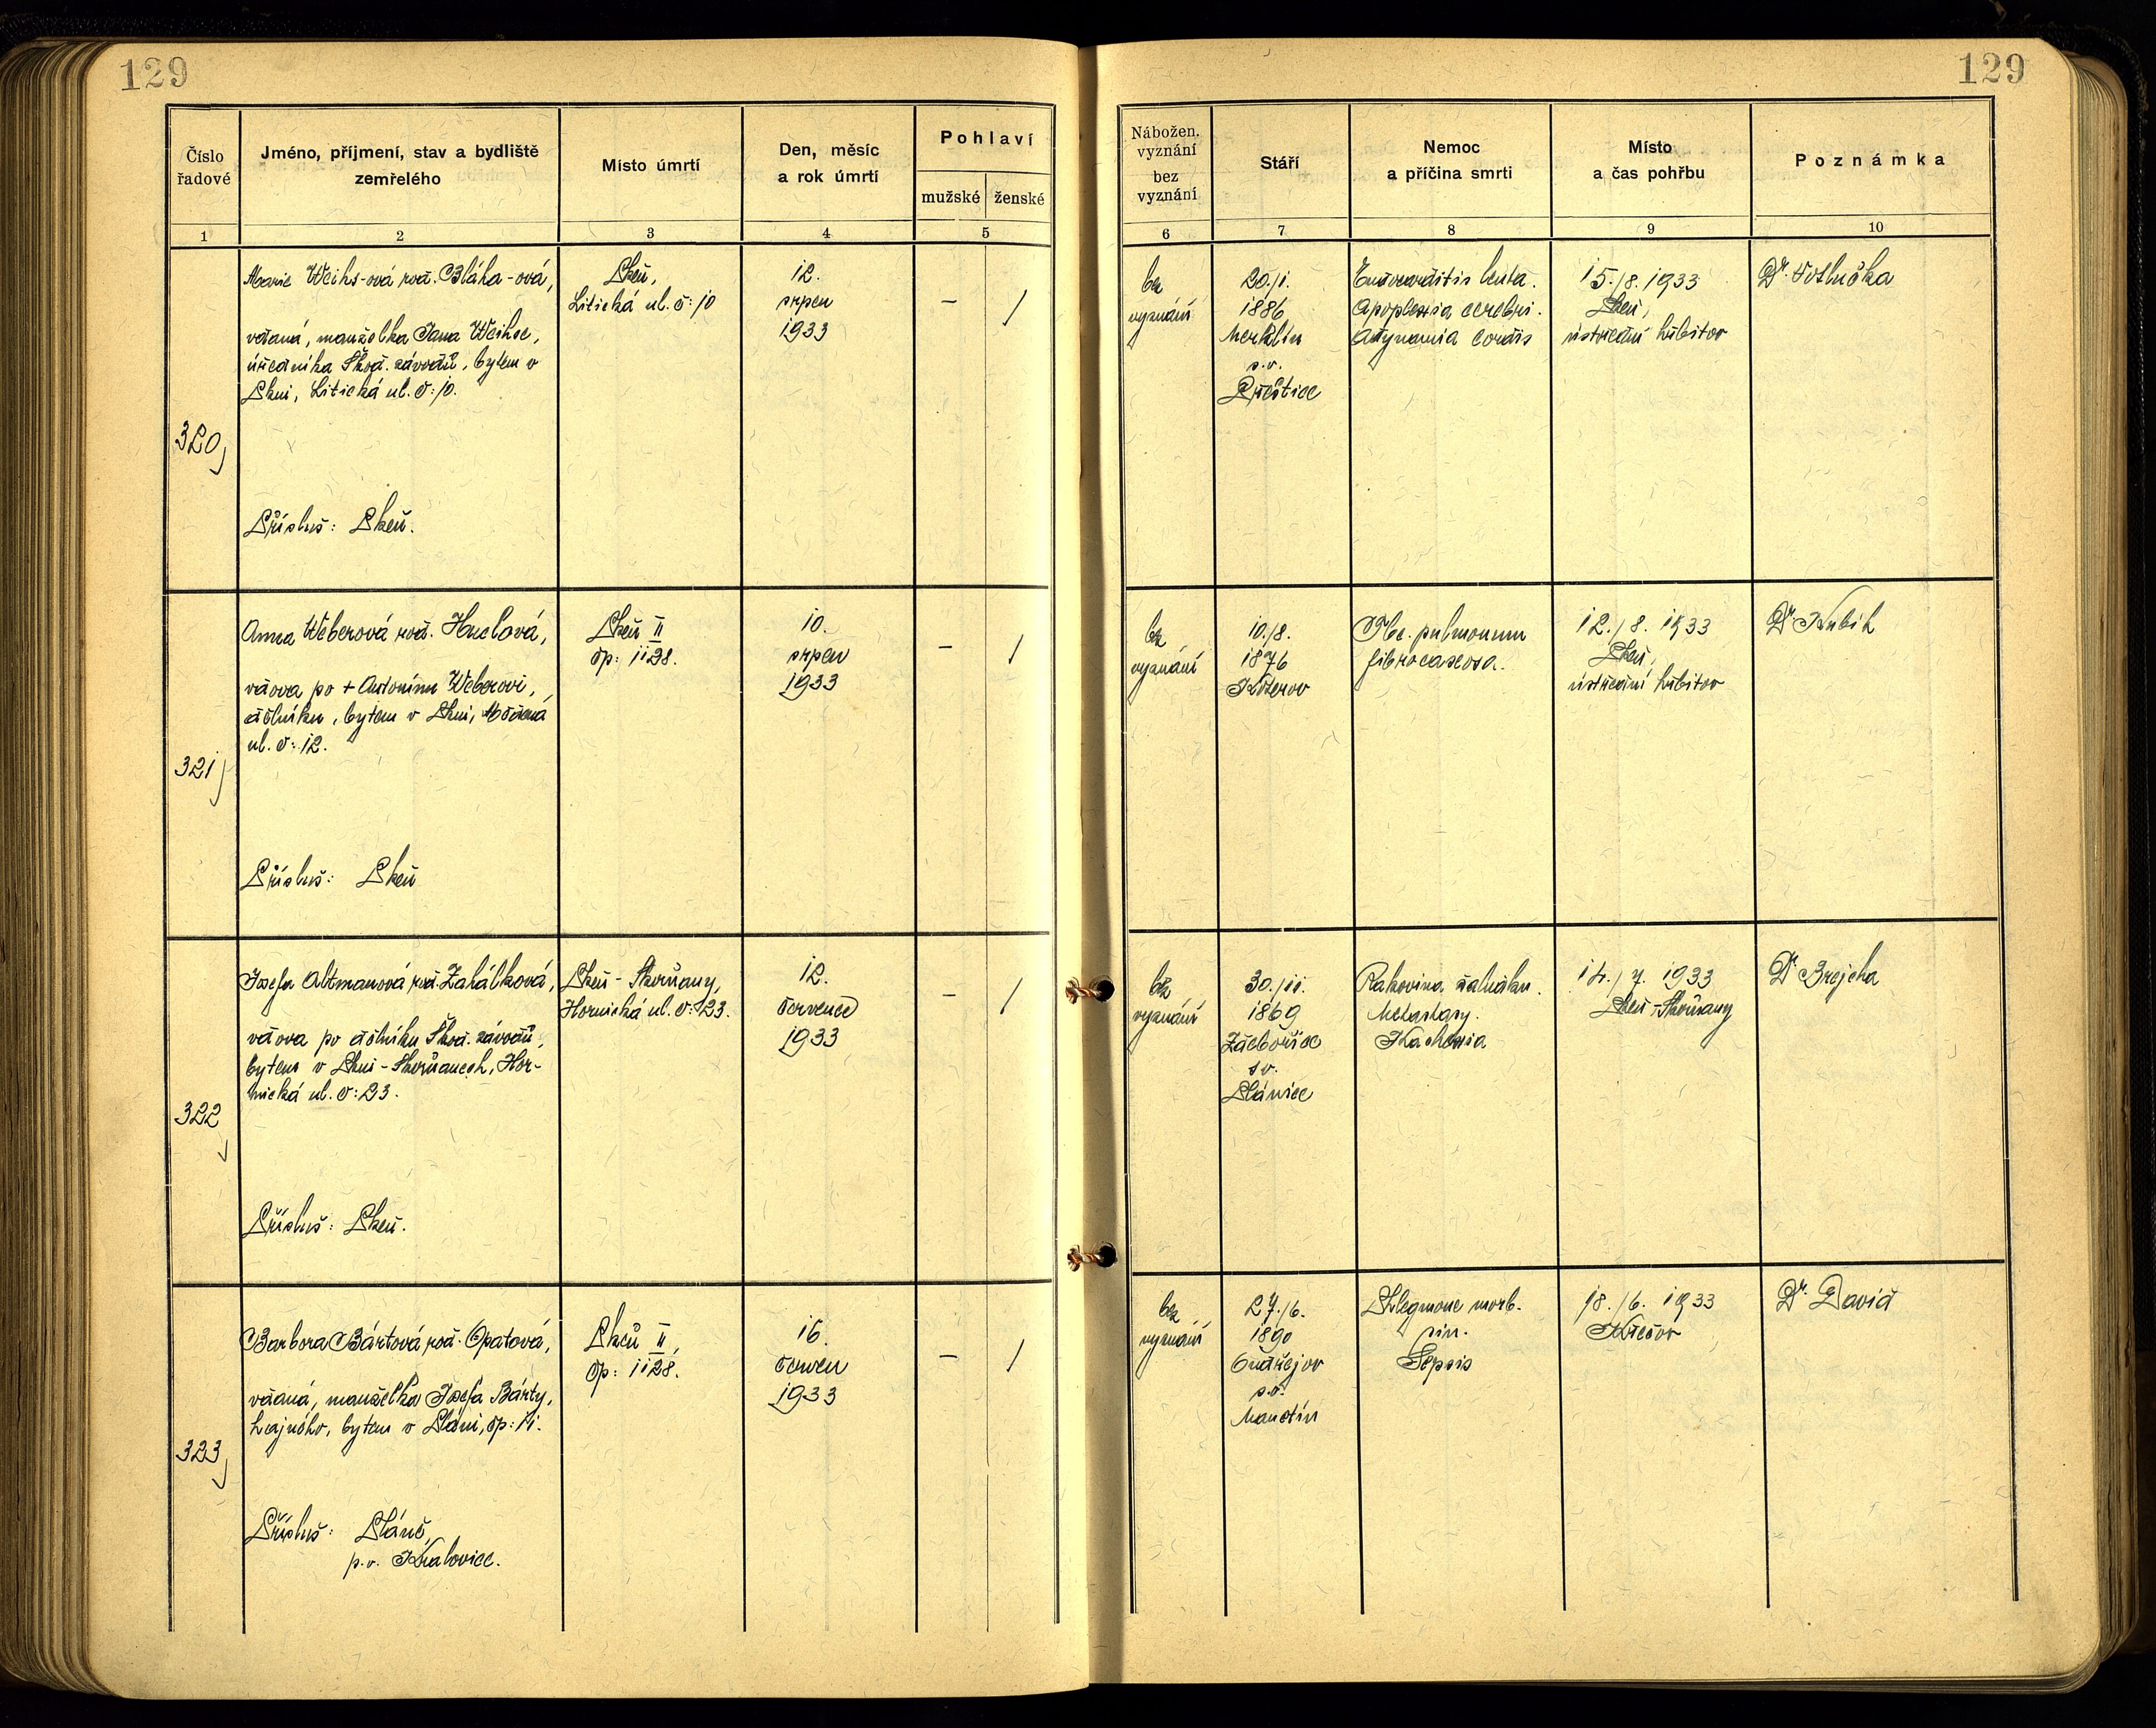 129
129
Číslo řadové
Jméno, příjmení, stav a bydliště zemřelého
Místo úmrtí
Den, měsíc a rok úmrtí
Pohlaví
mužské
ženské
Nábožen. vyznání
bez vyznání
Stáří
Nemoc a příčina smrti
Místo a čas pohřbu
Poznámka
1
2
3
4
5
6
7
8
9
10
320
Marie Weihs-ová roz. Bláha-ová,
vdaná, manželka Jana Weihse,
úředníka Škod. závodů, bytem v
Plzni, Litická ul. č: 10.
Přísluš: Plzeň.
Plzeň,
Litická ul. č: 10
12.
srpen
1933
–
/
bez
vyznání
20./1.
1886
Merklín
p.o.
Přeštice
Endocarditis lenta.
Apoplexia cerebri.
Adynamia cordis
15./8. 1933
Plzeň,
ústřední hřbitov
321
Anna Weberová roz. Huclová,
vdova po + Antonínu Weberovi,
dělníku, bytem v Plzni,
ul. č: 12.
Přísluš: Plzeň
Plzeň II
čp: 1128.
10.
srpen
1933
–
/
bez
vyznání
10./8.
1876
Tbc. pulmonum
fibrocaseosa.
12./8. 1933
Plzeň,
ústřední hřbitov
Dr Kubik
322
Josefa Altmanová roz. Zahálková,
vdova po dělníku Škod. závodů,
bytem v Plzni-Skvrňanech, Hor-
nická ul. č: 23.
Přísluš: Plzeň.
Plzeň-Skvrňany,
Hornická ul. č: 23.
12.
červenec
1933
–
/
bez
vyznání
30./11.
1869
Zábořice
Plánice
Rakovina žaludku.
Metastasy.
Kachexia
14./7. 1933
Plzeň-Skvrňany
Dr Brejcha
323
Barbora Bártová roz. Opatová,
vdaná, manželka Josefa Bárty,
bytem v Pláni, čp: 11.
Přísluš: Pláně,
p.o. Kralovice.
Plzeň II,
čp: 1128.
16.
červen
1933
–
/
bez
vyznání
27./6.
1890
Ondřejov
p.o.
Manětín
Phlegmone
sin.
Sepsis
18./6. 1933
Dr. David